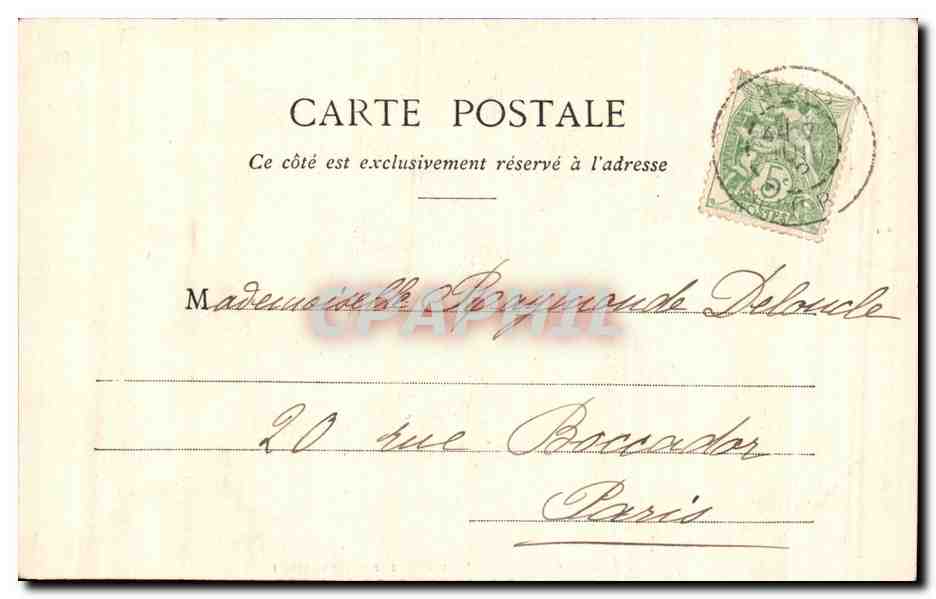 CARTE POSTALE
Ce côté est exclusivement réservé à l'adresse
5c
POSTES
Mademoiselle Raymonde Deloncle
CPAPHIL
20 rue Boccador
Paris